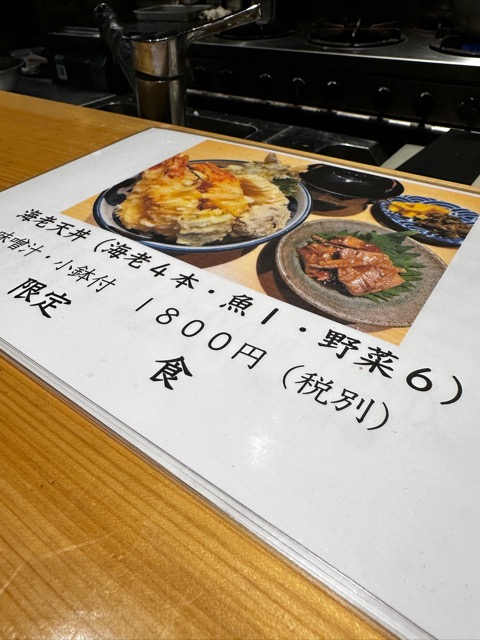 海老天丼(海老4本・魚1・野菜6)
味噌汁・小鉢付 1800円(税別)
限定 食